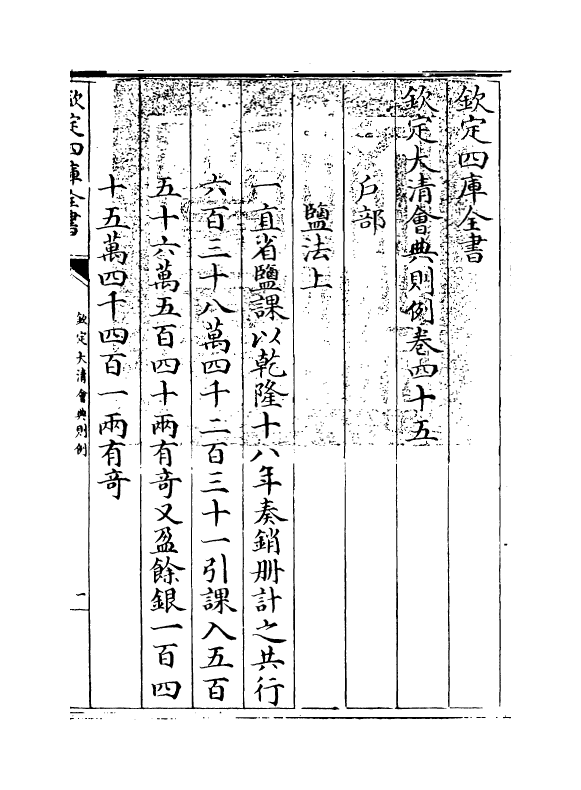 欽定四庫全書
欽定大清會典則例卷四十五
戶部
鹽法上
一直省鹽課以乾隆十八年奏銷冊計之共行
六百三十八萬四千二百三十一引課入五百
五十六萬五百四十兩有竒又盈餘銀一百四
十五萬四千四百一兩有竒
欽定四庫全書
欽定大清會典則例
一